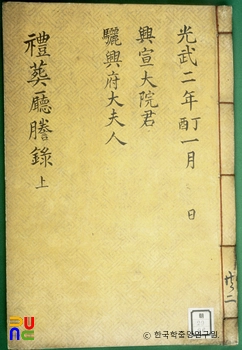 光武二年丁酉一月 日
興宣大院君
驪興府大夫人
禮葬廳謄錄 上
共二
ⓒ 한국학중앙연구원